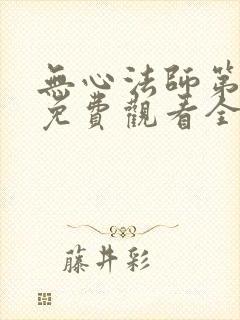 無心法師第
免費觀看全
藤井彩